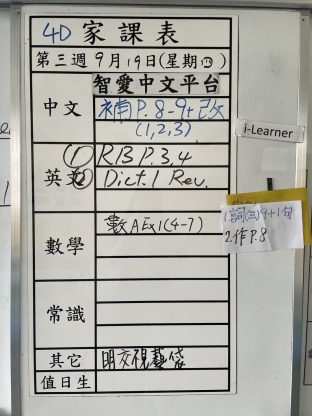 4D 家課表
第三週9月19日(星期四)
智愛中文平台
中文 補P.8-9+改
(1,2,3)
i-Learner
英文 ① R.B P.3,4
② Dict.1 Rev.
1.詞(三)9+1句
2.作P.8
數學 數A Ex1(4-7)
常識
其它 明交視藝袋
值日生